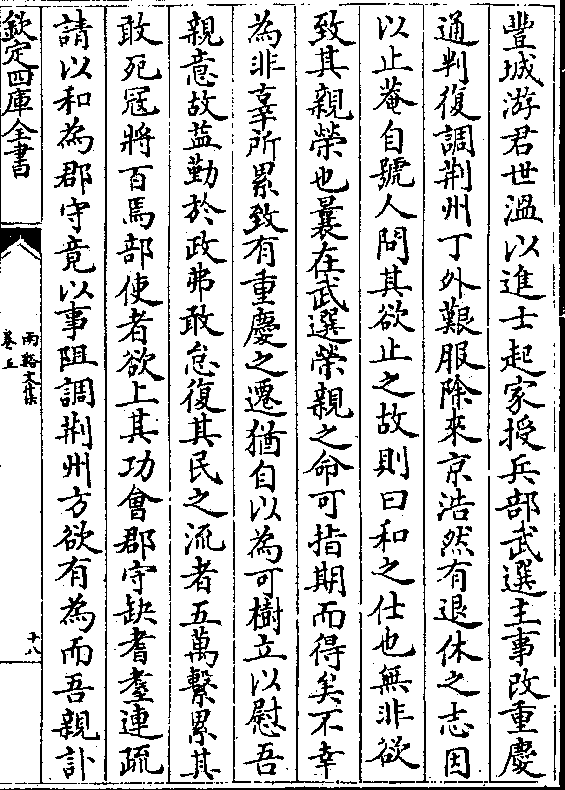 豐城游君世溫以進士起家授兵部武選主事改重慶
通判復調荆州丁外艱服除來京浩然有退休之志因
以止菴自號人問其欲止之故則曰和之仕也無非欲
致其親榮也曩在武選榮親之命可指期而得矣不幸
為非辜所累致有重慶之遷猶自以為可樹立以慰吾
親意故益勤於政弗敢怠復其民之流者五萬繫累其
敢死冦將百焉部使者欲上其功會郡守缺耆耋連疏
請以和為郡守竟以事阻調荆州方欲有為而吾親訃
欽定四庫全書
兩谿文集
卷五
十八